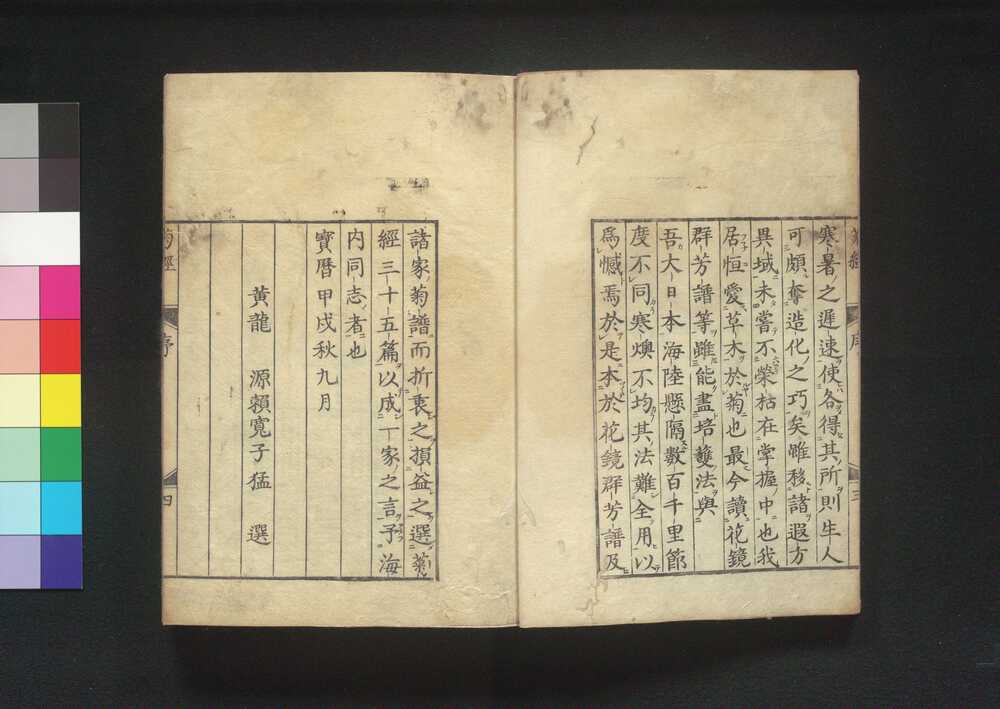 寒暑之遲速使各得其所則生人
可頗奪造化之巧矣雖移諸遐方
異域未嘗不榮枯在掌握中也我
居恒愛草木於菊也最今讀花鏡
群芳譜等雖能盡培蓺法與
吾大日本海陸懸隔數百千里節
度不同寒燠不均其法難全用以
爲憾焉於是本於花鏡群芳譜及
序
三
諸家菊譜而折衷之損益之選菊
經三十五篇以成一家之言予海
内同志者也
寶曆甲戌秋九月
黄龍 源賴寬子猛 選
菊經
序
四